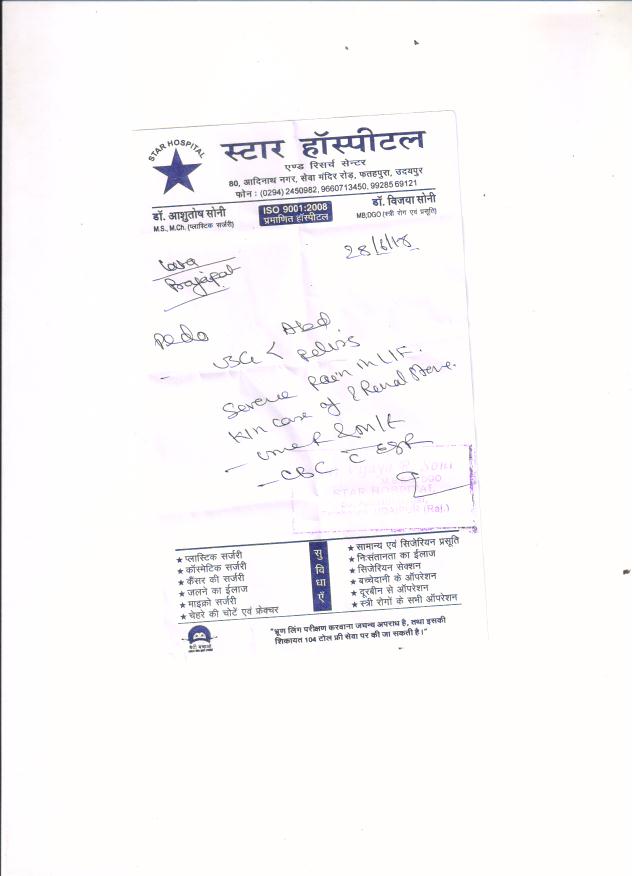 STAR HOSPITAL
स्टार हॉस्पीटल
एण्ड रिसर्च सेन्टर
80, आदिनाथ नगर, सेवा मंदिर रोड़, फतहपुरा, उदयपुर
फोन : (0294) 2450982, 9660713450, 9928569121
डॉ. आशुतोष सोनी
M.S., M.Ch. (प्लास्टिक सर्जरी)
ISO 9001:2008
प्रमाणित हॉस्पीटल
डॉ. विजया सोनी
MB,DGO (स्त्री रोग एवं प्रसूति)
28/6/18
Prajapat
Abd.
USG < Pelvis
Severe pain in LIF.
K/n case of ? Renal Stone.
- Urine R & M/E
- CBC c ESR
Soni
DGO
STAR HOSPITAL
(Raj.)
सुविधाएँ
★ प्लास्टिक सर्जरी
★ कॉस्मेटिक सर्जरी
★ कैंसर की सर्जरी
★ जलने का ईलाज
★ माइक्रो सर्जरी
★ चेहरे की चोटें एवं फ्रेक्चर
★ सामान्य एवं सिजेरियन प्रसूति
★ निःसंतानता का ईलाज
★ सिजेरियन सेक्शन
★ बच्चेदानी के ऑपरेशन
★ दूरबीन से ऑपरेशन
★ स्त्री रोगों के सभी ऑपरेशन
"भ्रूण लिंग परीक्षण करवाना जघन्य अपराध है, तथा इसकी
शिकायत 104 टोल फ्री सेवा पर की जा सकती है।"